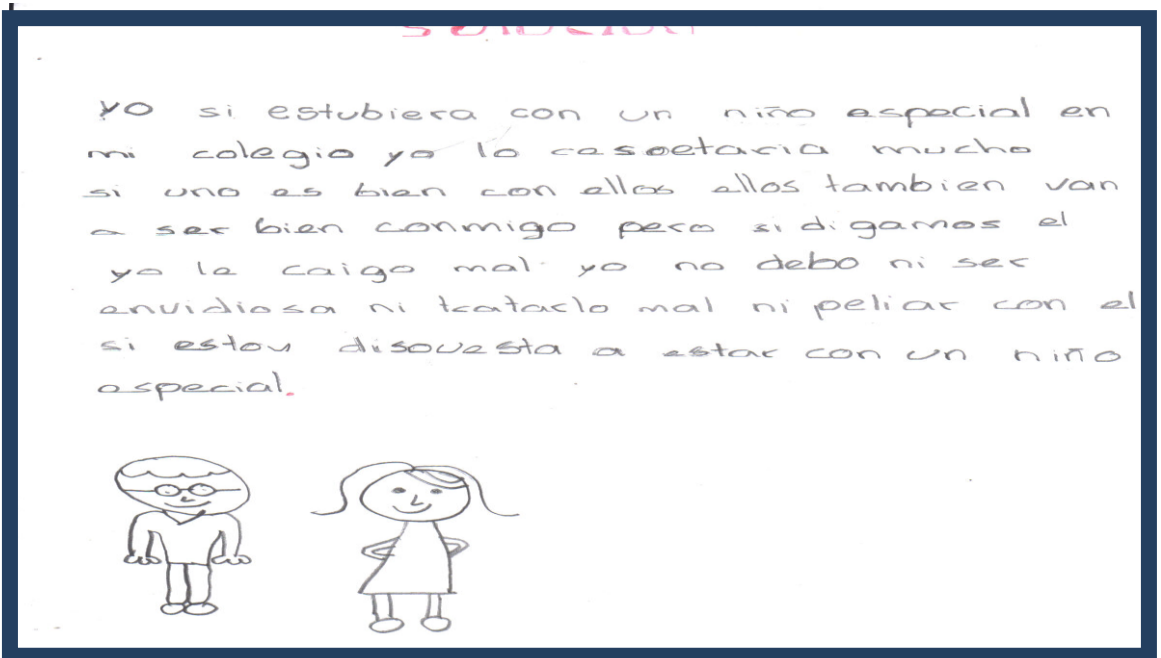 solución
yo si estubiera con un niño especial en
mi colegio yo lo resoetaria mucho
si uno es bien con ellos ellos tambien van
a ser bien conmigo pero si digamos el
yo le caigo mal yo no debo ni ser
envidiosa ni tratarlo mal ni peliar con el
si estoy disouesta a estar con un niño
especial.